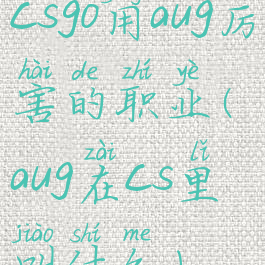 csgo用aug厉
hài de zhí yè
害的职业(
zài lǐ
aug在cs里
jiào shí me
叫什么)